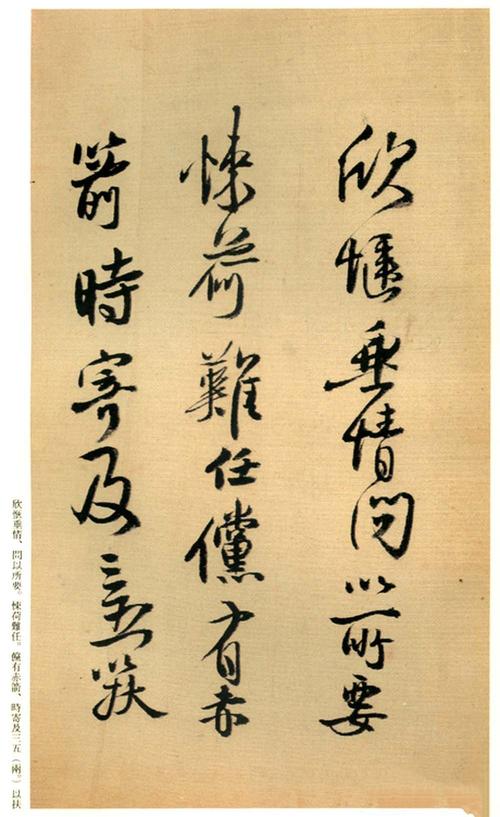 欣愜垂情問以所要
悚荷難任儻有赤
箭時寄及三五以扶
欣愜垂情、問以所要。悚荷難任。儻有赤箭、時寄及三五（兩）。以扶